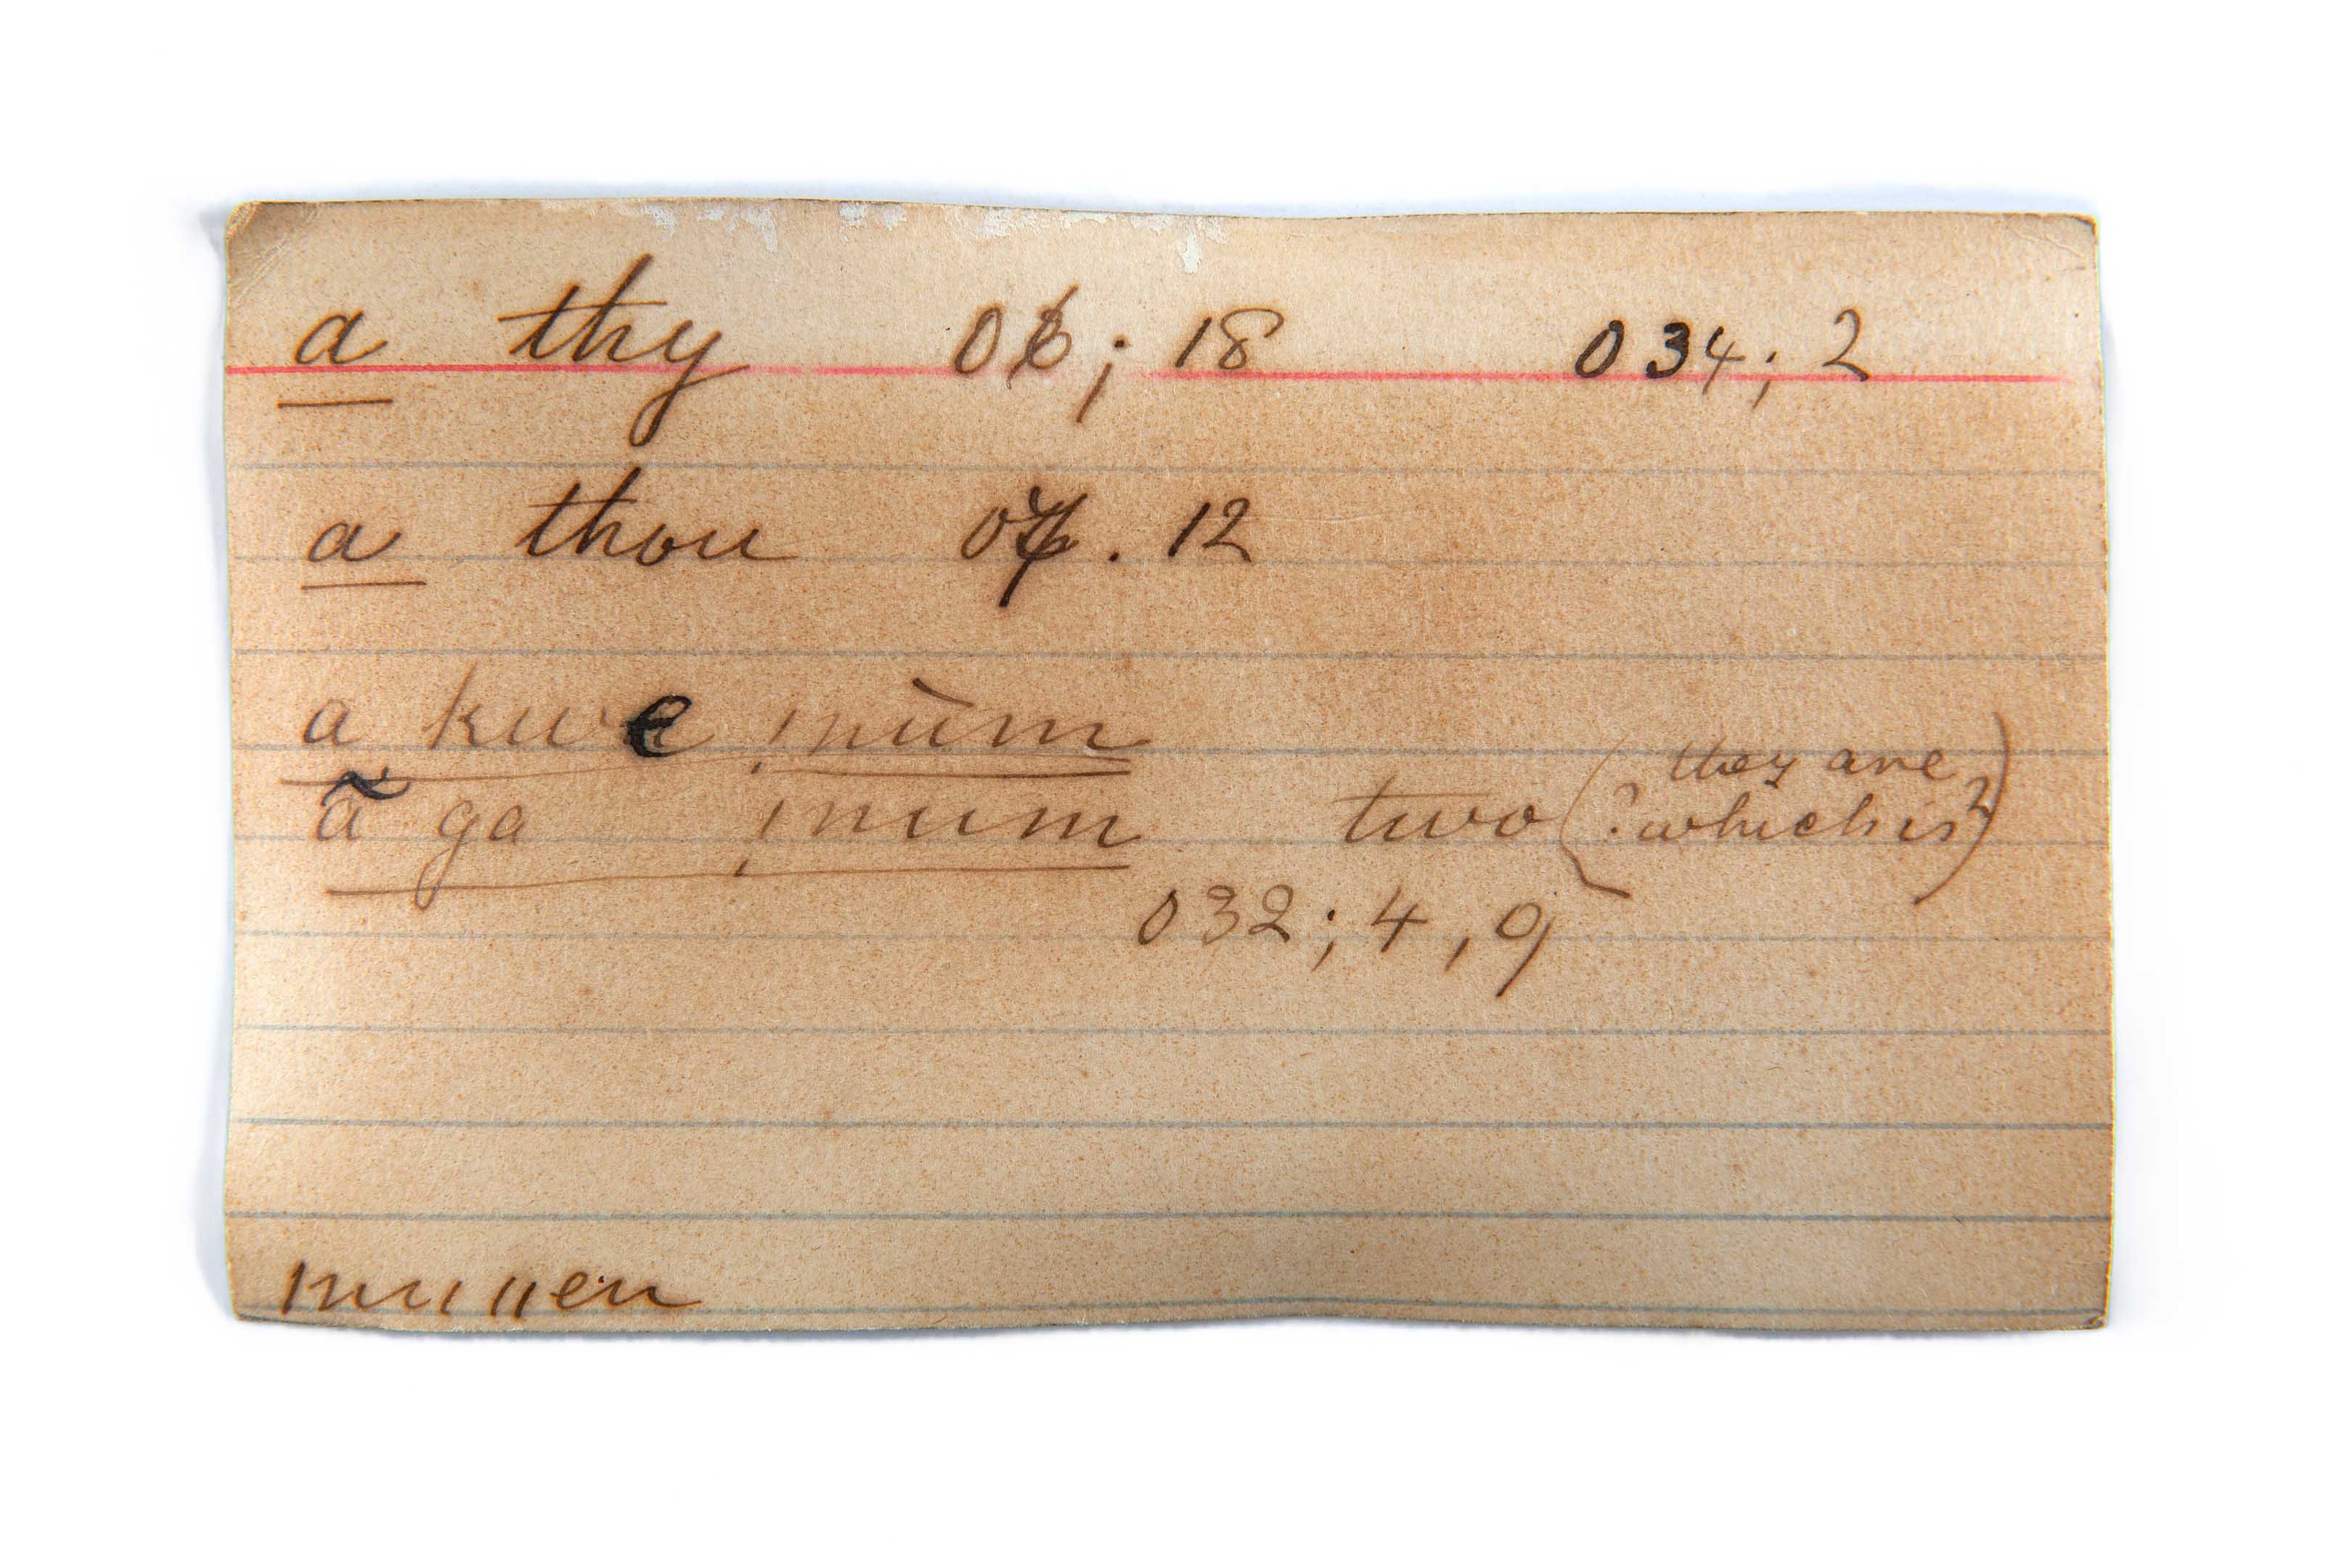 a thy 06; 18 034; 2
a thou 07. 12
a kwe inùm
ã ga inum two (they are
? which is?)
032; 4, 9